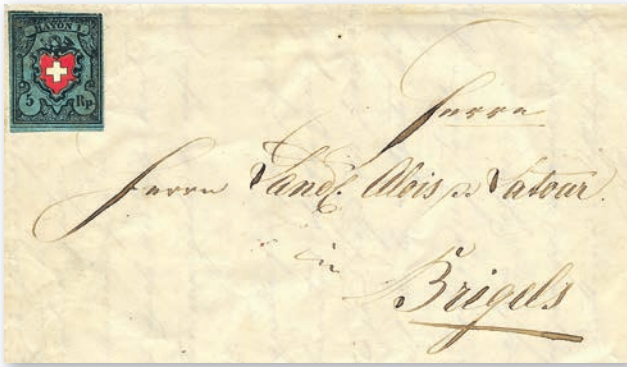 RAYON I
5 Rp.
Herrn
Herrn Land Alois Latour
in
Brigels